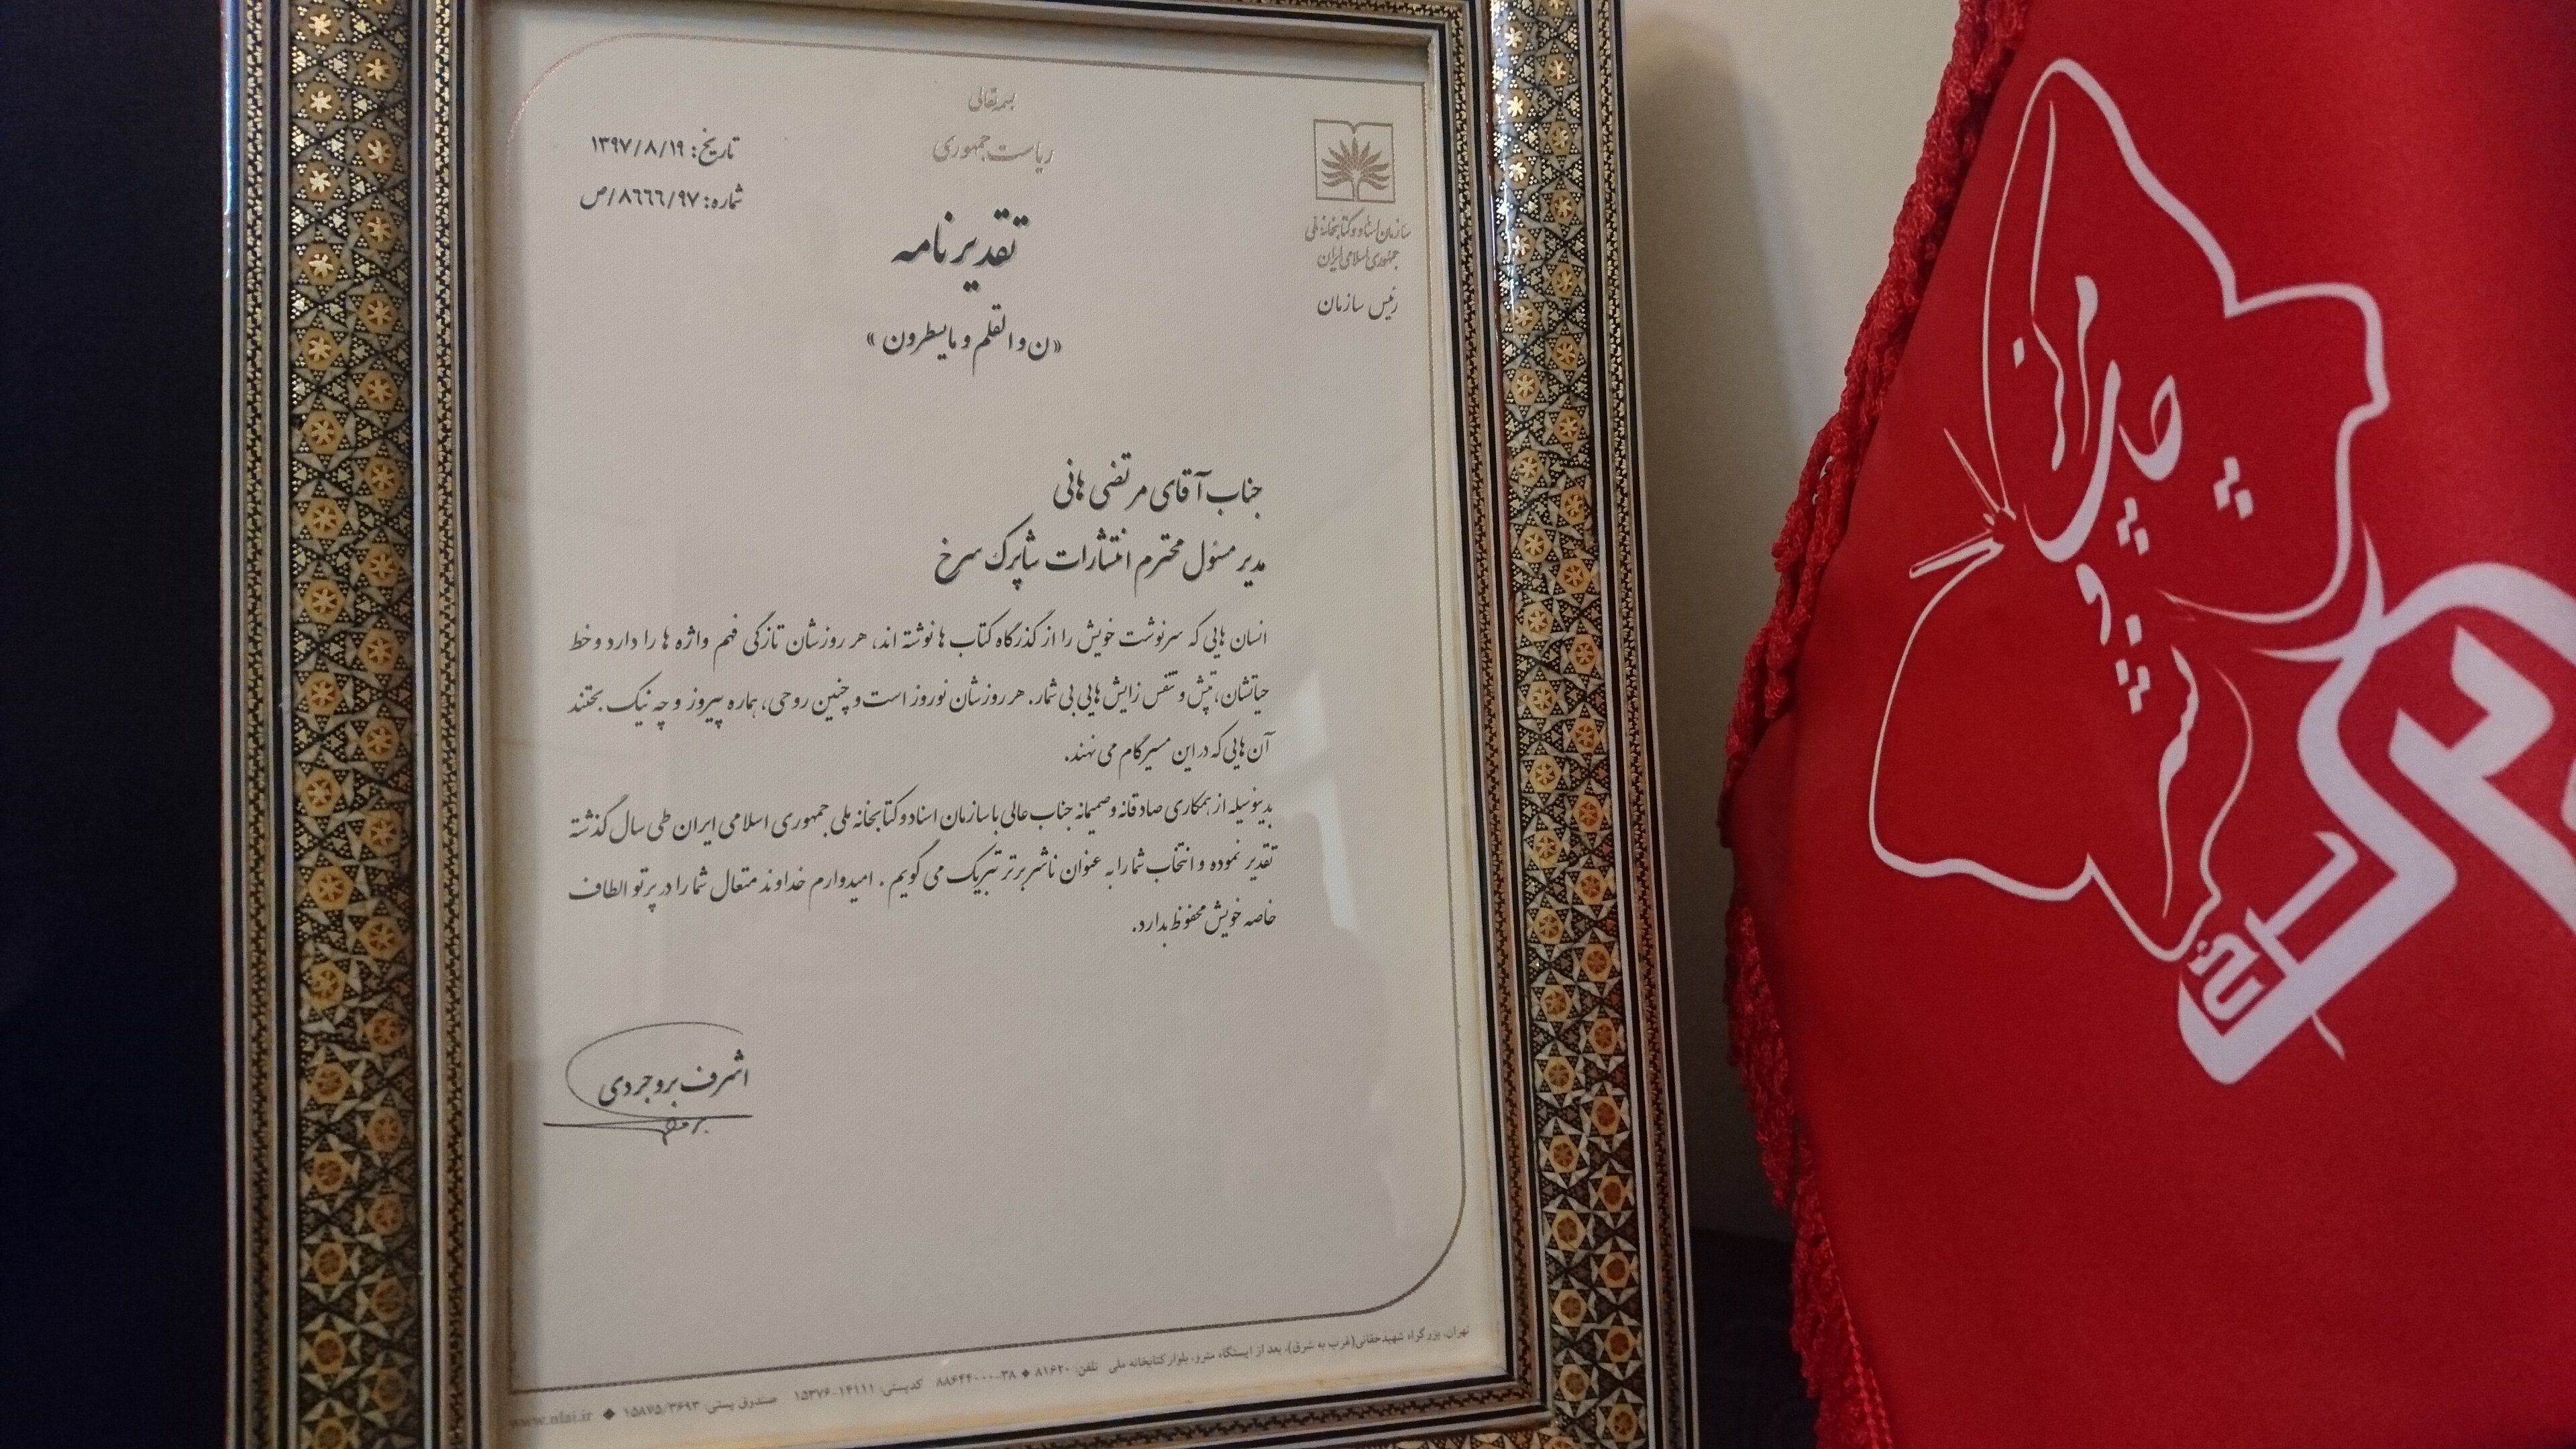 بسمه تعالی
ریاست جمهوری
سازمان اسناد و کتابخانه ملی
جمهوری اسلامی ایران
رئیس سازمان
تاریخ: ۱۳۹۷/۸/۱۹
شماره: ۸۶۶۶/۹۷/ص
تقدیرنامه
«ن والقلم و مایسطرون»
جناب آقای مرتضی هانی
مدیر مسئول محترم انتشارات شاپرک سرخ
انسان هایی که سرنوشت خویش را از گذرگاه کتاب ها نوشته اند، هر روزشان تازگی فهم واژه ها را دارد و خط
حیاتشان، تپش و تنفس زایش هایی بی شمار. هر روزشان نوروز است و چنین روحی، هماره پیروز و چه نیک بختند
آن هایی که در این مسیر گام می نهند.
بدینوسیله از همکاری صادقانه و صمیمانه جناب عالی با سازمان اسناد و کتابخانه ملی جمهوری اسلامی ایران طی سال گذشته
تقدیر نموده و انتخاب شما را به عنوان ناشر برتر تبریک می گویم. امیدوارم خداوند متعال شما را در پرتو الطاف
خاصه خویش محفوظ بدارد.
اشرف بروجردی
تهران، بزرگراه شهید حقانی(غرب به شرق)، بعد از ایستگاه مترو، بلوار کتابخانه ملی تلفن: ۸۱۶۲۰ ◆ ۳۸-۸۸۶۴۴۰۰۰ کدپستی: ۱۴۱۱۱-۱۵۳۷۶ صندوق پستی: ۱۵۸۷۵/۳۶۹۳ ◆ www.nlai.ir
مرکز
چاپ
و
نشر